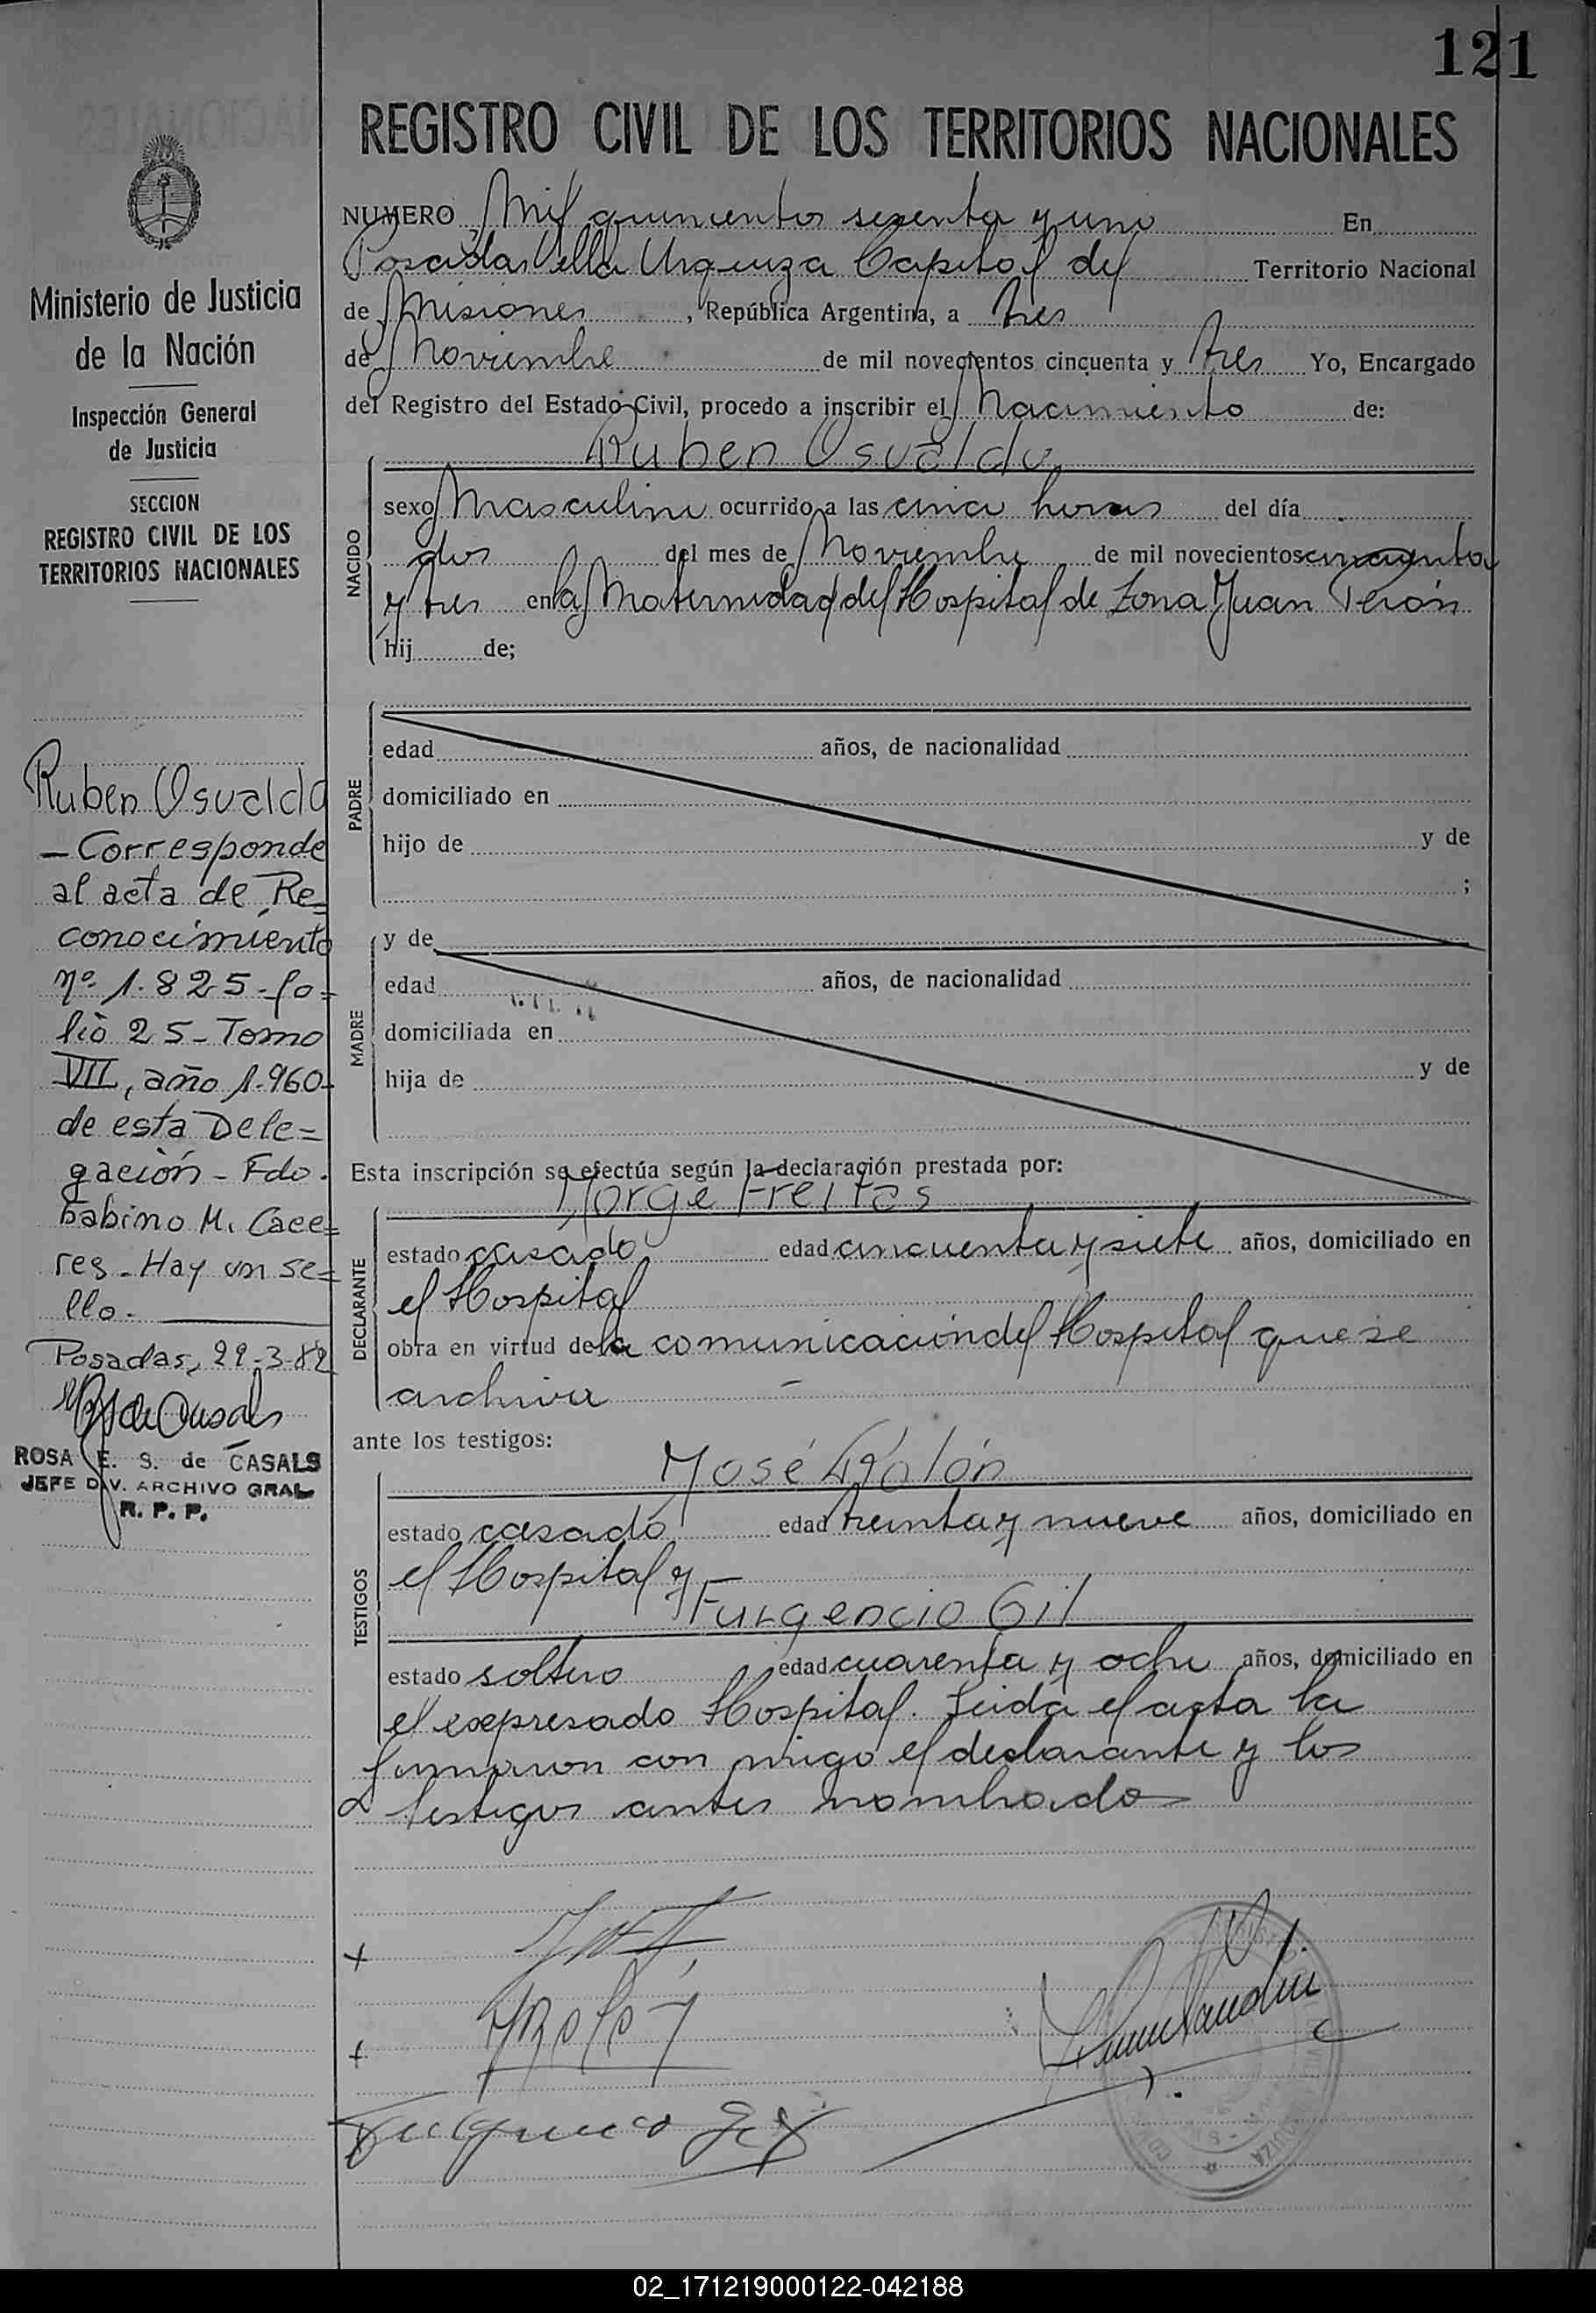 121
REGISTRO CIVIL DE LOS TERRITORIOS NACIONALES
NUMERO Mil quinientos sesenta y uno En
Posadas Villa Urquiza Capital del Territorio Nacional
de Misiones, República Argentina, a tres
de Noviembre de mil novecientos cincuenta y tres Yo, Encargado
del Registro del Estado Civil, procedo a inscribir el Nacimiento de:
Ruben Osvaldo
NACIDO
sexo Masculino ocurrido a las cinco horas del día
dos del mes de Noviembre de mil novecientos cincuenta
y tres en la Maternidad del Hospital de Zona Juan Perón
hij de;
PADRE
edad años, de nacionalidad
domiciliado en
hijo de y de
;
MADRE
y de
edad años, de nacionalidad
domiciliada en
hija de y de
Esta inscripción se efectúa según la declaración prestada por:
Jorge Freitas
DECLARANTE
estado casado edad cincuenta y siete años, domiciliado en
el Hospital
obra en virtud de la comunicación del Hospital que se
archiva
ante los testigos:
José Rolón
TESTIGOS
estado casado edad treinta y nueve años, domiciliado en
el Hospital y
Fulgencio Gil
estado soltero edad cuarenta y ocho años, domiciliado en
el expresado Hospital. Leida el acta la
firmaron con migo el declarante y los
testigos antes nombrado
Fulgencio Gil
Ministerio de Justicia
de la Nación
Inspección General
de Justicia
SECCION
REGISTRO CIVIL DE LOS
TERRITORIOS NACIONALES
Ruben Osvaldo
- Corresponde
al acta de Re=
conocimiento
nº 1.825 - fo=
lio 25 - Tomo
VII, año 1.960-
de esta Dele=
gación - Fdo.
Babino M. Cace=
res - Hay un se=
llo.
Posadas, 29-3-82
ROSA E. S. de CASALS
JEFE DIV. ARCHIVO GRAL
R. P. P.
02_171219000122-042188